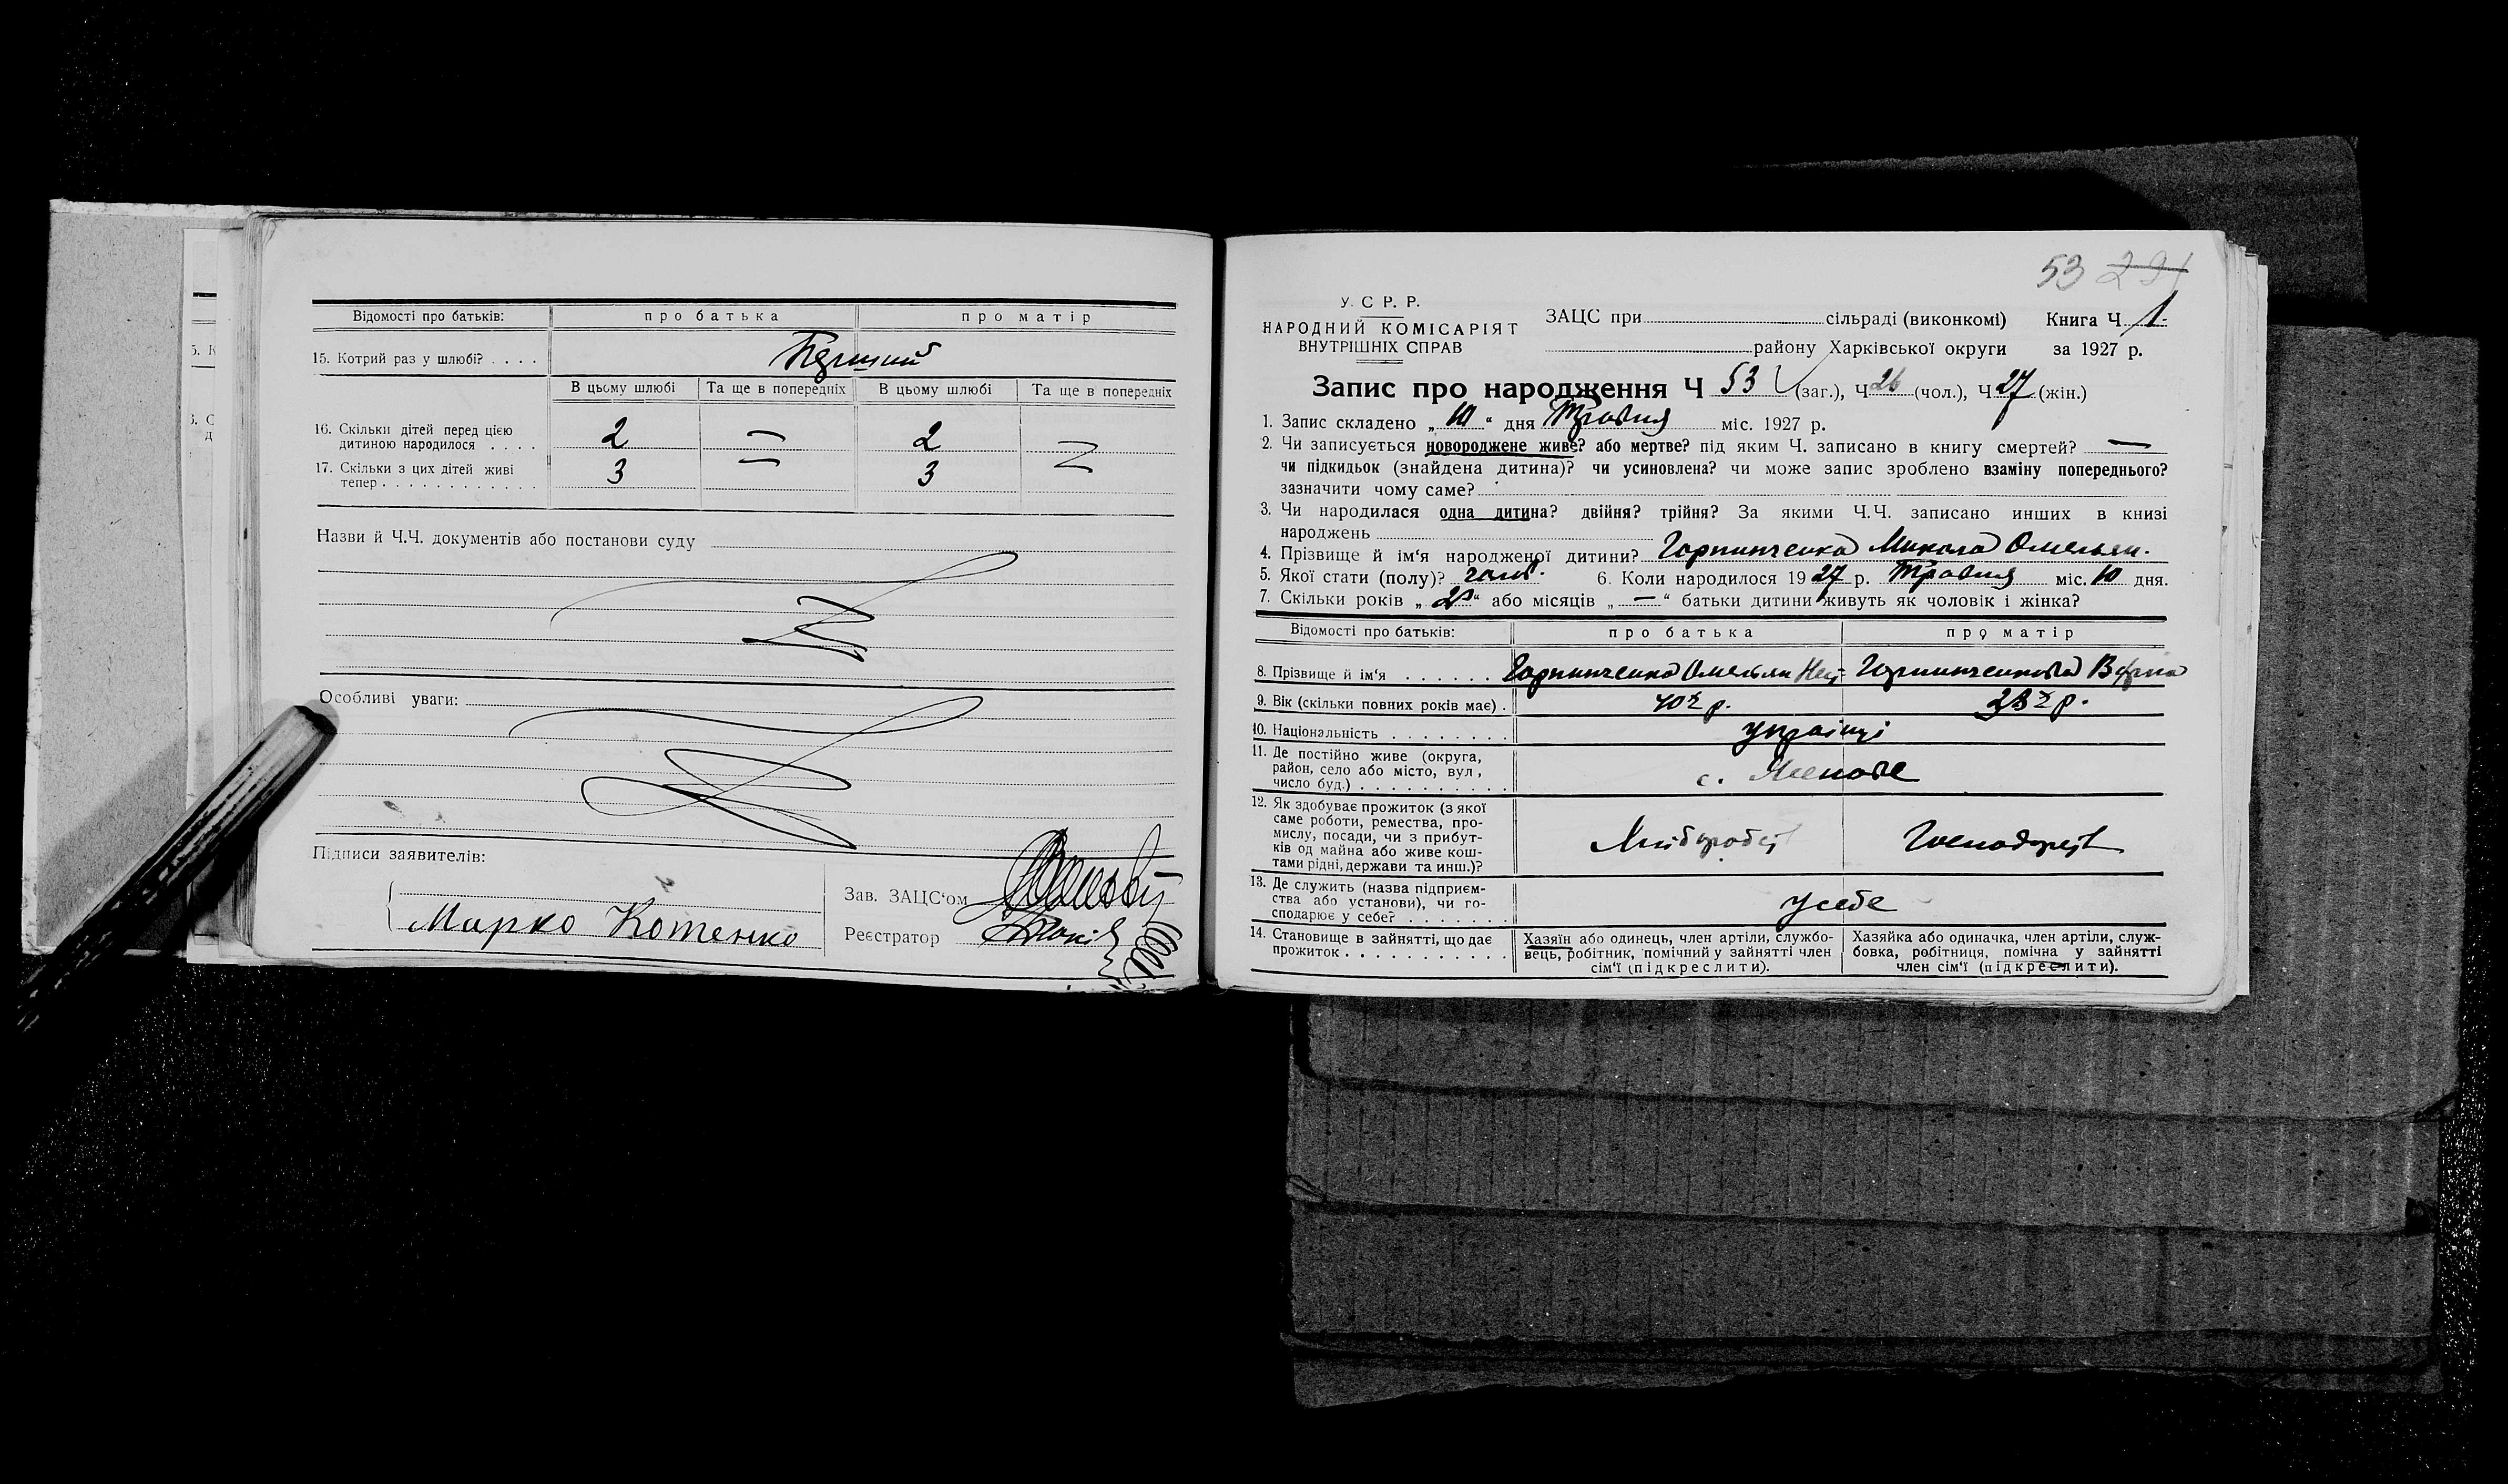 Відомості про батьків: про батька про матір
15. Котрий раз у шлюбі? . . . .
В цьому шлюбі Та ще в попередніх В цьому шлюбі Та ще в попередніх
16. Скільки дітей перед цією
дитиною народилося . . . . 2 — 2 —
17. Скільки з цих дітей живі
тепер . . . . . . . . . . . . 3 — 3 —
Назви й Ч.Ч. документів або постанови суду
Особливі уваги:
Підписи заявителів:
Зав. ЗАЦС'ом
Марко Котенко
Реєстратор
53 291
У. С Р. Р.
НАРОДНИЙ КОМІСАРІЯТ
ВНУТРІШНІХ СПРАВ
ЗАЦС при сільраді (виконкомі) Книга Ч 1
району Харківської округи за 1927 р.
Запис про народження Ч 53 (заг.), Ч 26 (чол.), Ч 27 (жін.)
1. Запис складено „ 10 “ дня Травня міс. 1927 р.
2. Чи записується новороджене живе? або мертве? під яким Ч. записано в книгу смертей? —
чи підкидьок (знайдена дитина)? чи усиновлена? чи може запис зроблено взаміну попереднього?
зазначити чому саме?
3. Чи народилася одна дитина? двійня? трійня? За якими Ч.Ч. записано инших в книзі
народжень
4. Прізвище й ім'я народженої дитини? Горпинченко Микола Омельян.
5. Якої стати (полу)? чолов. 6. Коли народилося 1927 р. Травня міс. 10 дня.
7. Скільки років „ “ або місяців „ — “ батьки дитини живуть як чоловік і жінка?
Відомості про батьків: про батька про матір
8. Прізвище й ім'я . . . . . . Горпинченко Омельян Горпинченкова
9. Вік (скільки повних років має) . 40 р. р.
10. Національність . . . . . . . . українці
11. Де постійно живе (округа,
район, село або місто, вул,
число буд.) . . . . . . . . . . с.
12. Як здобуває прожиток (з якої
саме роботи, ремества, про-
мислу, посади, чи з прибут-
ків од майна або живе кош-
тами рідні, держави та инш.)?
Хліборобст Господарст
13. Де служить (назва підприєм-
ства або установи), чи го-
сподарює у себе? . . . . . . . у себе
14. Становище в зайнятті, що дає
прожиток . . . . . . . . . . .
Хазяїн або одинець, член артіли, службо-
вець, робітник, помічний у зайнятті член
сім'ї (підкреслити).
Хазяйка або одиначка, член артіли, служ-
бовка, робітниця, помічна у зайнятті
член сім'ї (підкреслити).